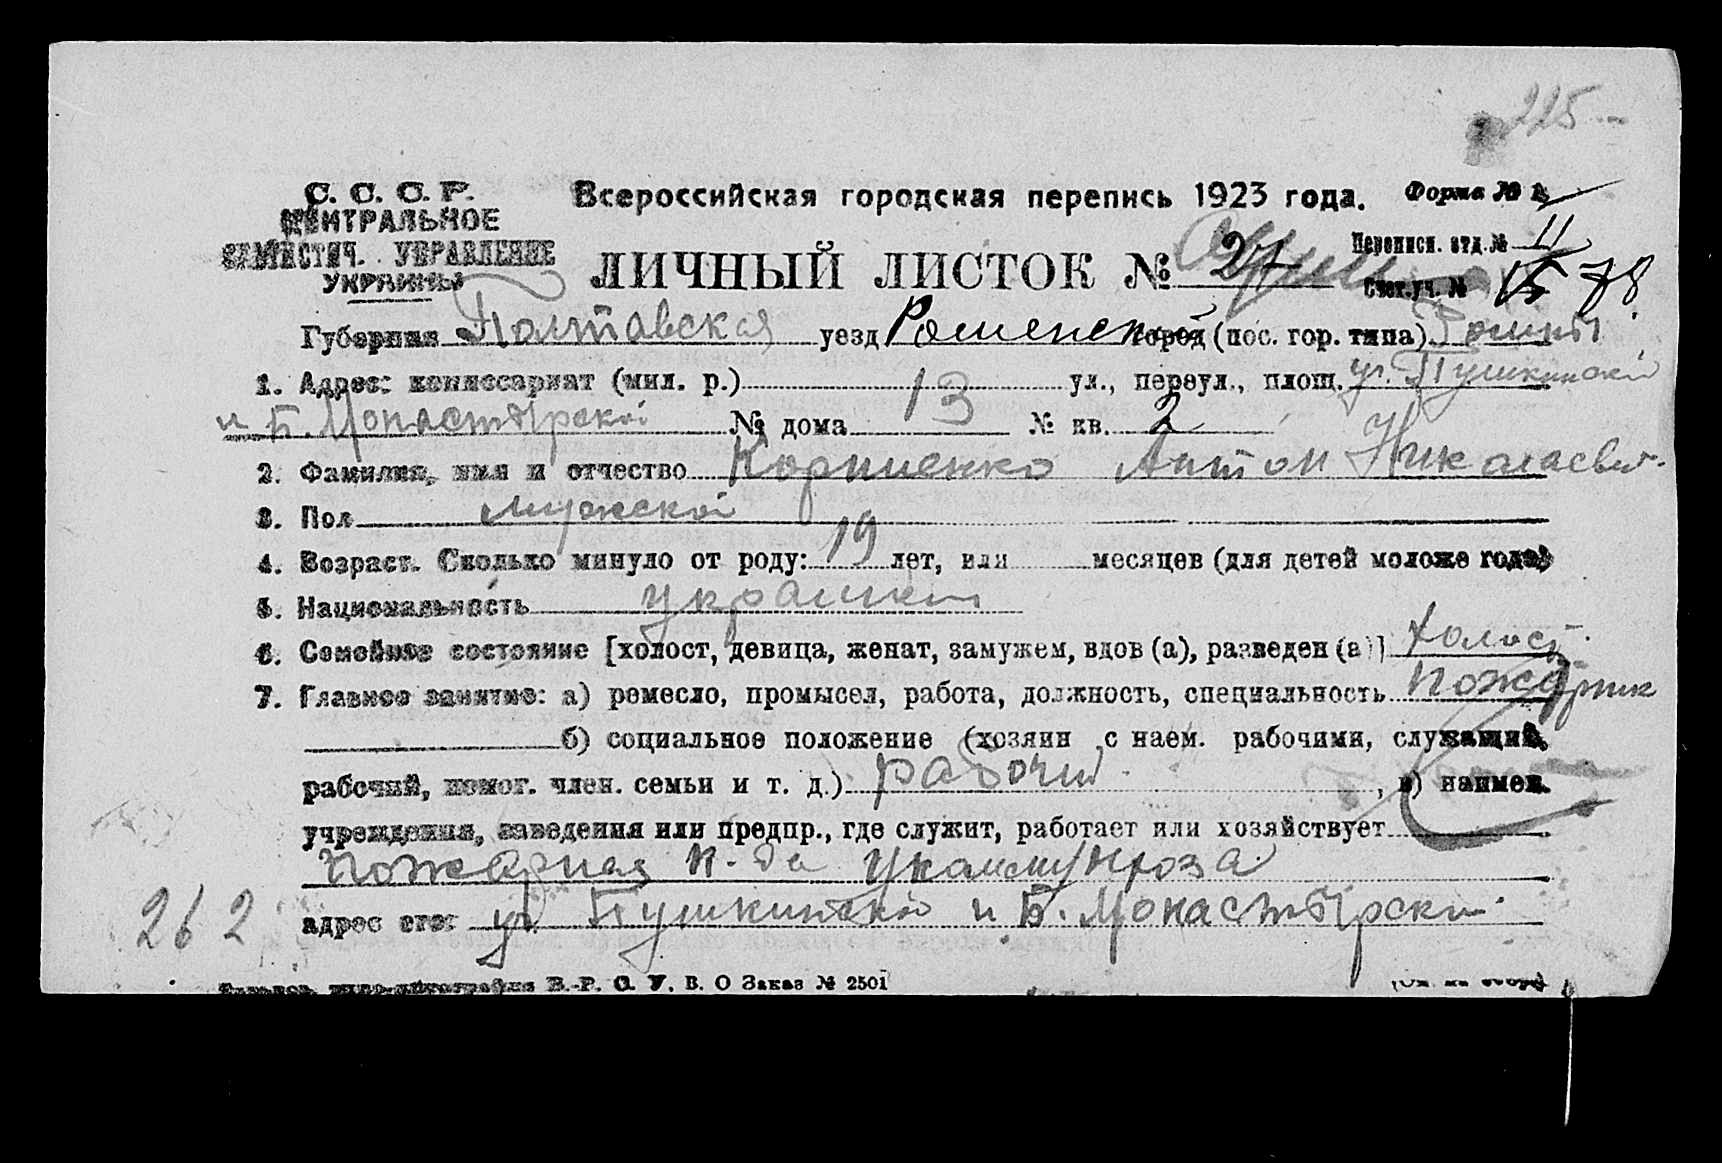 225
С. С. С. Р.
ЦЕНТРАЛЬНОЕ
СТАТИСТИЧ. УПРАВЛЕНИЕ
УКРАИНЫ
Всероссийская городская перепись 1923 года.
Форма № 1.
ЛИЧНЫЙ ЛИСТОК № 27
Переписн. отд. № 11
Счет. уч. № 15 78
Губерния Полтавская уезд Роменский город (пос. гор. типа) Ромны
1. Адрес: комиссариат (мил. р.) ул., переул., площ. ул. Пушкинской
и Б. Монастырской № дома 13 № кв. 2
2. Фамилия, имя и отчество Корниенко Антон Николаевич
3. Пол мужской
4. Возраст. Сколько минуло от роду: 19 лет, или месяцев (для детей моложе года)
5. Национальность украинец
6. Семейное состояние [холост, девица, женат, замужем, вдов (а), разведен (а)] холост.
7. Главное занятие: а) ремесло, промысел, работа, должность, специальность пожарник
б) социальное положение (хозяин с наем. рабочими, служащий,
рабочий, помог. член. семьи и т. д.) рабочий , в) наимен.
учреждения, заведения или предпр., где служит, работает или хозяйствует
Пожарная к-да
адрес его: ул. Пушкинской и Б. Монастырской
262
В.-Р. С. У. В. О Заказ № 2501